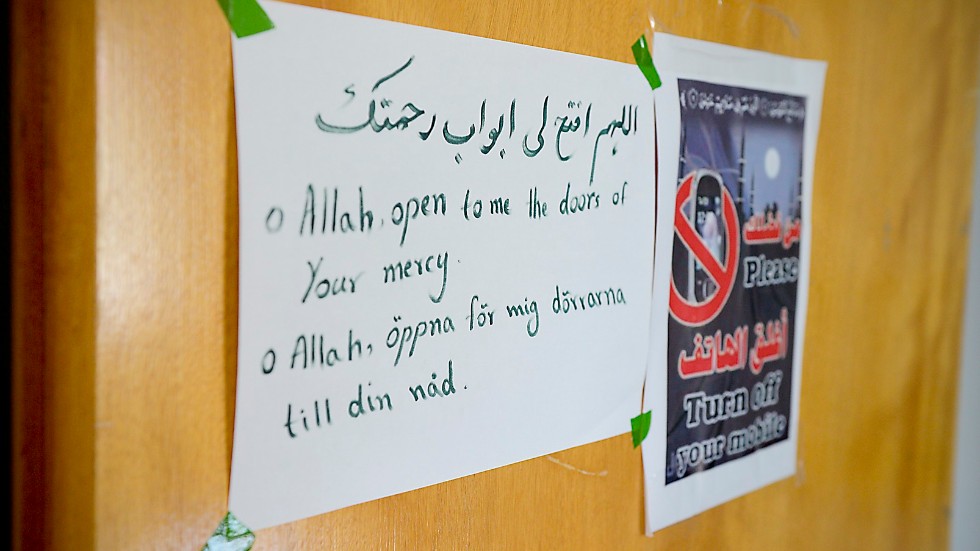 اللهم افتح لى ابواب رحمتك
o Allah, open to me the doors of
Your mercy.
o Allah, öppna för mig dörrarna
till din nåd.
من فضلك
Please
أغلق الهاتف
Turn off
your mobile